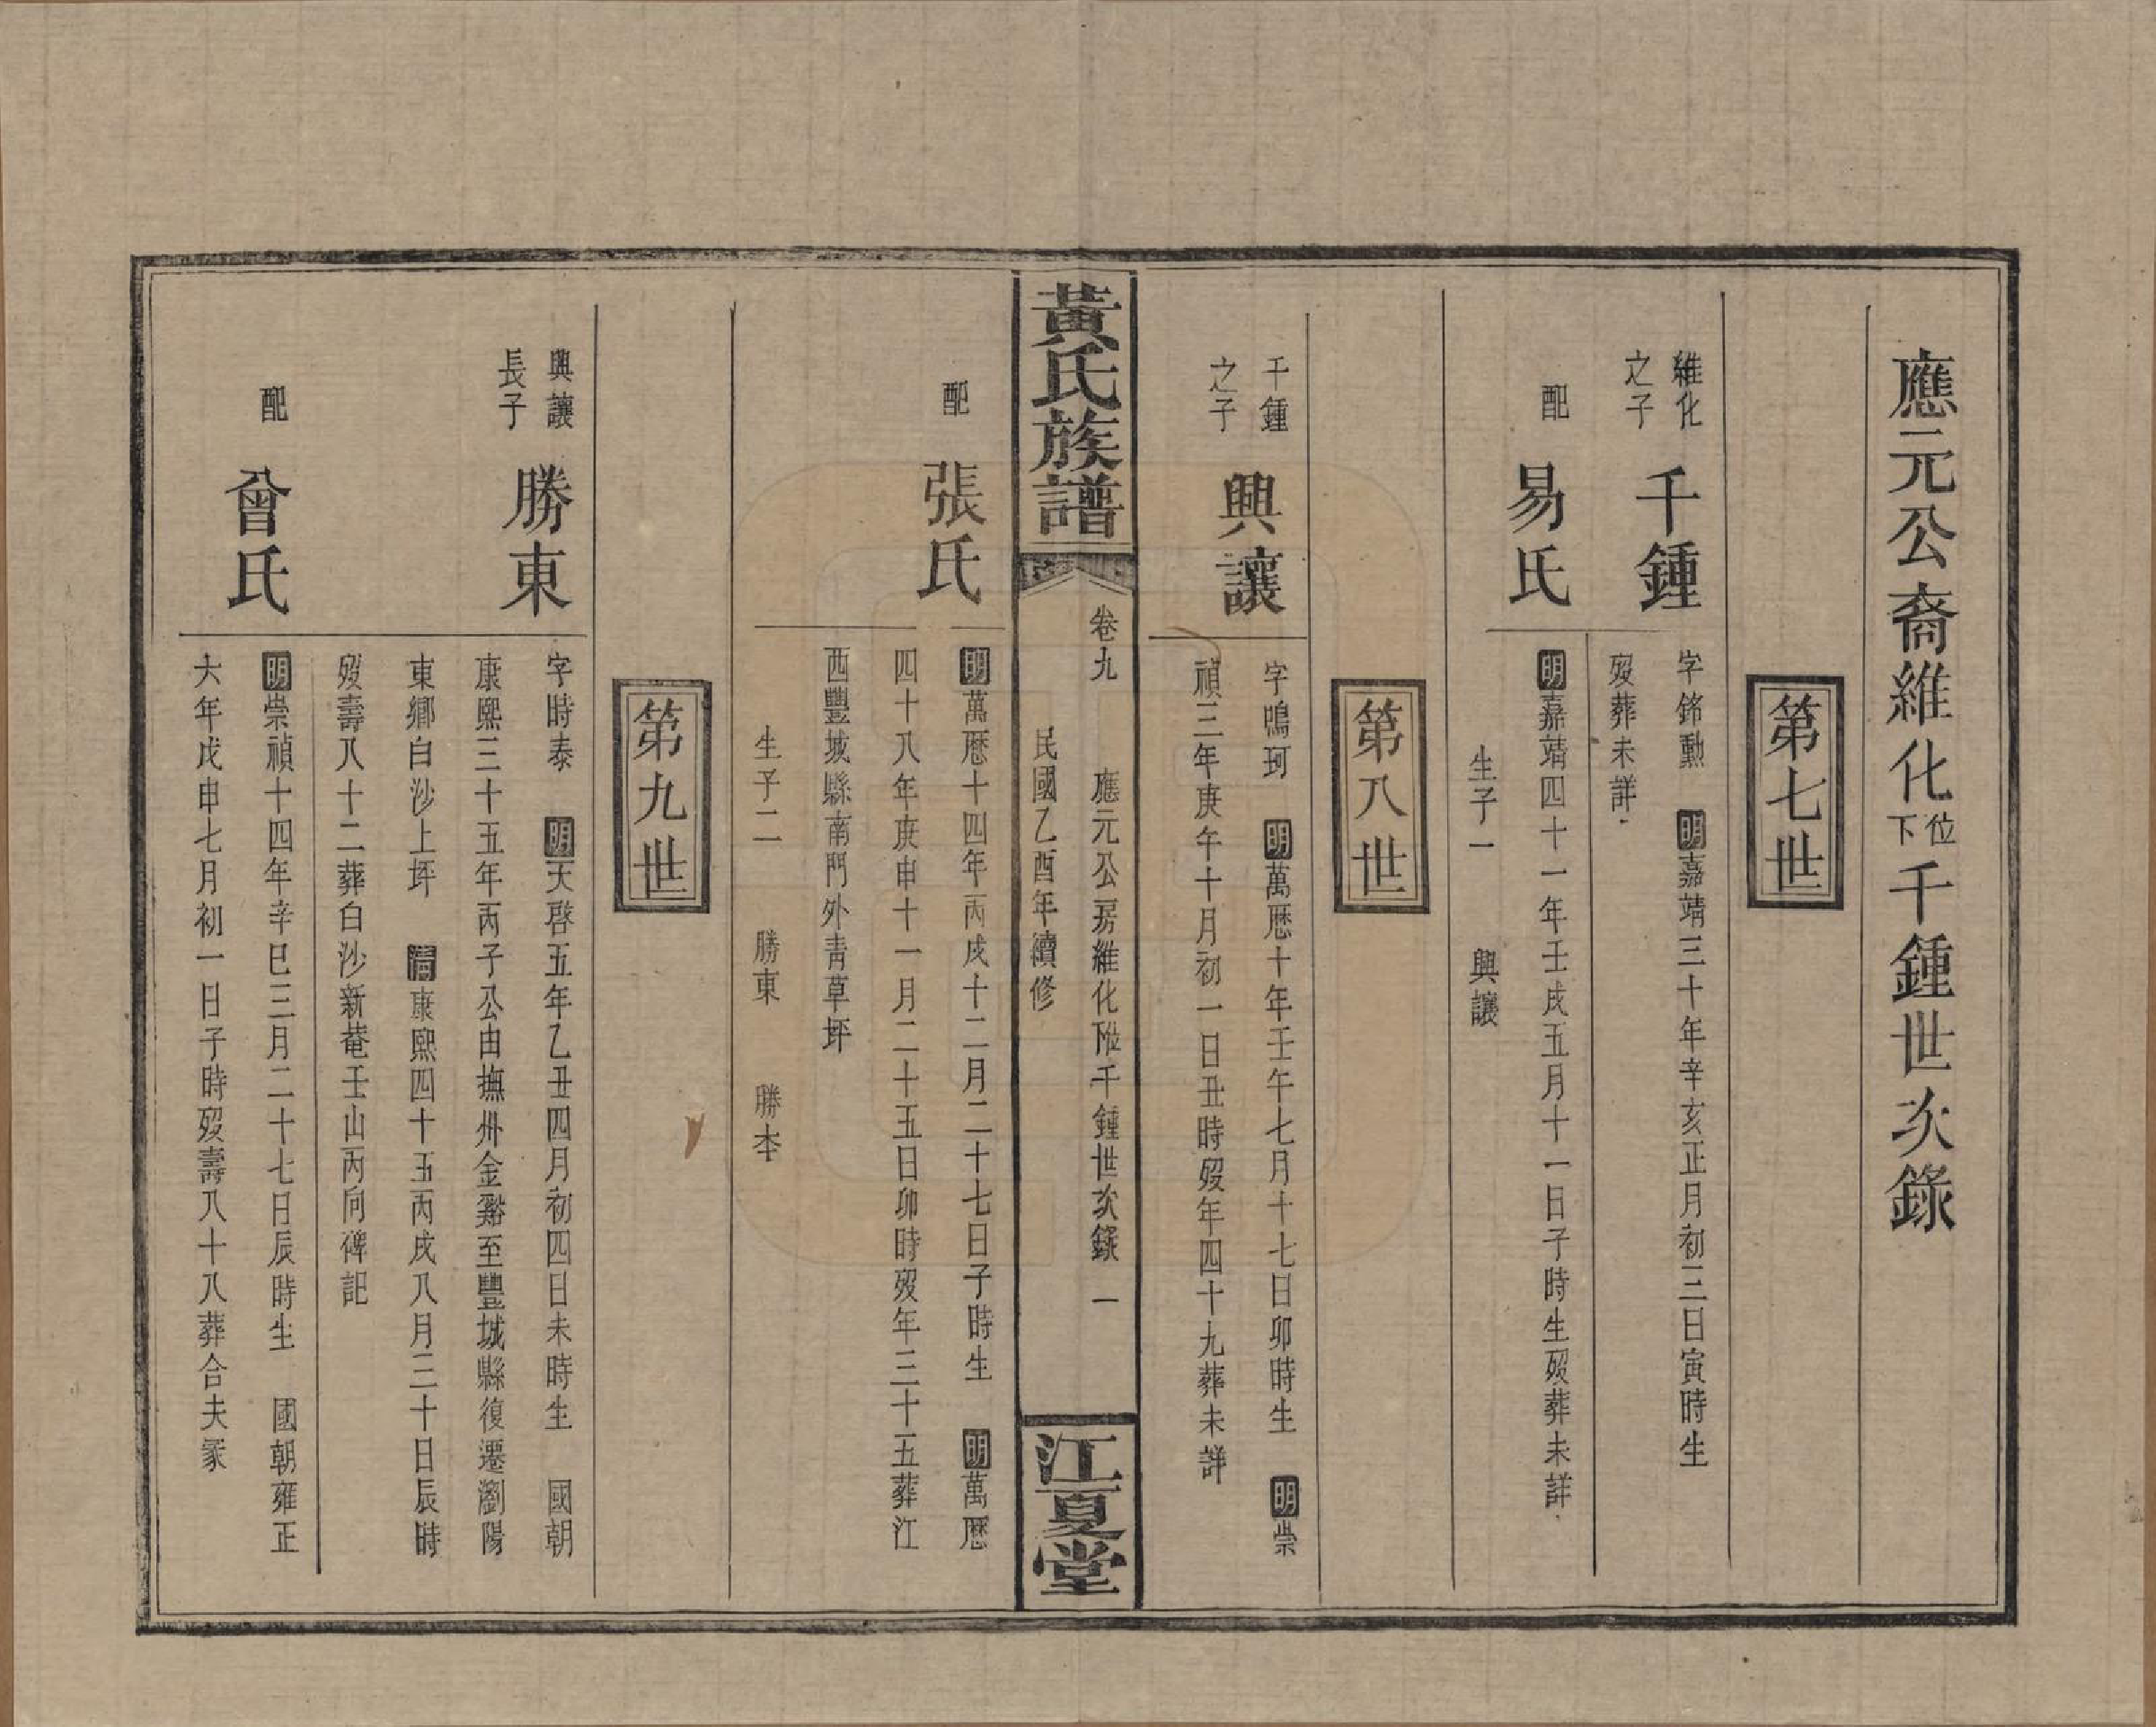 應元公裔維化位下千鍾世次錄
第七世
維化之子
千鍾
字銘勳 明嘉靖三十年辛亥正月初三日寅時生
歿葬未詳
配
易氏
明嘉靖四十一年壬戌五月十一日子時生歿葬未詳
生子一 興讓
第八世
千鍾之子
興讓
字鳴珂 明萬厯十年壬午七月十七日卯時生 明崇
禎三年庚午十月初一日丑時歿年四十九葬未詳
黃氏族譜
卷九 應元公房維化阰千鍾世次錄 一
民國乙酉年續修
江夏堂
配
張氏
明萬厯十四年丙戌十二月二十七日子時生 明萬厯
四十八年庚申十一月二十五日卯時歿年三十五葬江
西豐城縣南門外青草坪
生子二 勝東 勝本
第九世
興讓長子
勝東
字時泰 明天啓五年乙丑四月初四日未時生 國朝
康熙三十五年丙子公由撫州金谿至豐城縣復遷瀏陽
東鄉白沙上坪 清康熙四十五丙戌八月三十日辰時
歿壽八十二葬白沙新菴壬山丙向碑記
配
曾氏
明崇禎十四年辛巳三月二十七日辰時生 國朝雍正
六年戊申七月初一日子時歿壽八十八葬合夫冢